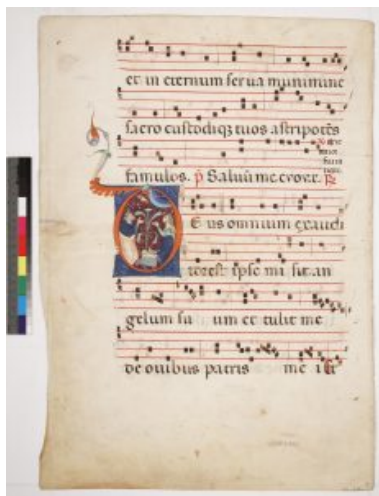 et in eternum serua munimine
sacro custodiq; tuos astripotēs
famulos. Saluū me
Deus omnium exaudi
tor est ipse mi sit an
gelum su um et tulit me
de ouibus patris me i